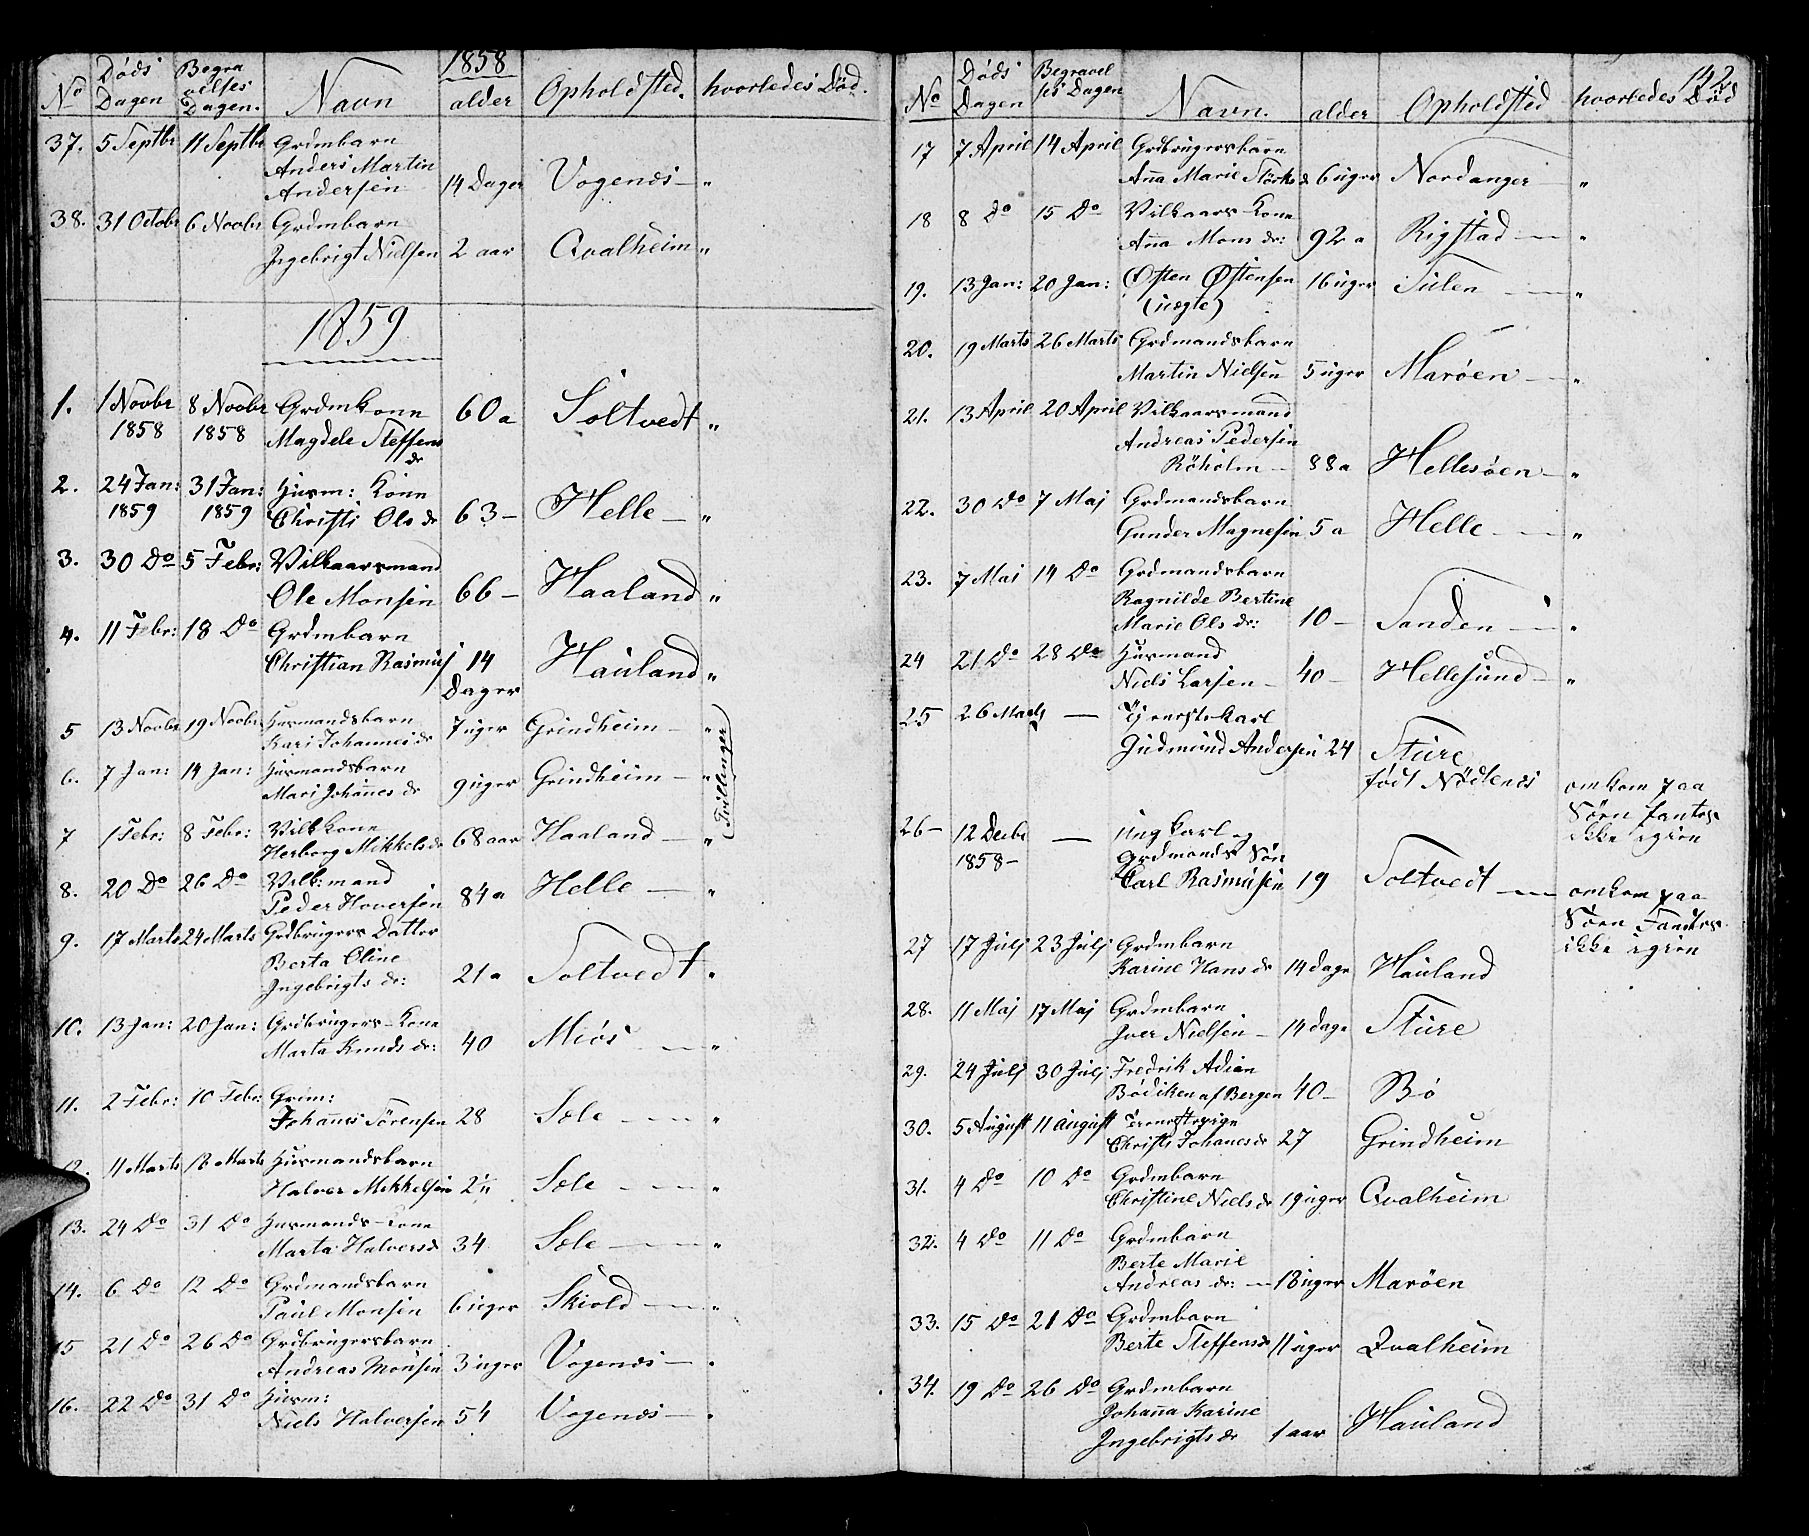 1858
No Døds Dagen Begravelses Dagen. Navn alder Opholdsted. hvorledes Død.
37. 5 Septbr 11 Septbr Grdmbarn
Anders Martin
Andersen 14 Dager Vogenæs — "
38. 31 Octobr 6 Novbr Grdmbarn
Ingebrigt Nielsen 2 aar Qvalheim "
1859
1. 1 Novbr 8 Novbr Grdmkone 60 a Soltvedt "
1858 1858 Magdele Steffens
dr
2. 24 Jan: 31 Jan: Husm: Kone
1859 1859 Christi Ols dr 63 — Helle — "
3. 30 Do 5 Febr: Vilkaarsmand
Ole Monsen 66 — Haaland "
4. 11 Febr: 18 Do Grdmbarn
Christian Rasmus 14 Hauland "
Dager
5 13 Novbr 19 Novbr Husmandsbarn
Kari Johannes dr 7 uger Grindheim — "
6. 7 Jan: 14 Jan: Husmandsbarn
Mari Johannes dr 9 uger Grindheim — "
(Tvillinger)
7 1 Febr: 8 Febr: Vilk kone
Herborg Mikkels dr 68 aar Haaland — "
8. 20 Do 26 Do Vilk: mand
Peder Hoversen 84 a Helle — "
9. 17 Marts 24 Marts Grdbrugers Datter
Berta Oline
Ingebrigts dr: 21 a Soltvedt "
10. 13 Jan: 20 Jan: Grdbrugers-Kone
Marta Knuds dr: 40 Miøs — "
11. 2 Febr: 10 Febr: Grdm:
Johans Sörensen 28 Sæle — "
12. 11 Marts 18 Marts Husmandsbarn
Halver Mikkelsen Sæle — "
13. 24 Do 31 Do Husmands-Kone
Marta Halversdr 34 Sæle — "
14. 6 Do 12 Do Grdmandsbarn
Paul Monsen 6 uger Skiold — "
15 21 Do 26 Do Grdbrugersbarn
Andreas Monsen 3 uger Vogenæs — "
16. 22 Do 31 Do Husm:
Niels Halversen 54 Vogenæs — "
142
No Døds Dagen Begravelses Dagen Navn. alder Opholdsted hvorledes Død
17 7 April 14 April Grdbrugersbarn
Aña Marie Störks dr 6 uger Nordanger — "
18 8 Do 15 Do Vilkaars-Kone
Aña Mons dr: 92 a Rigstad — "
19. 13 Jan: 20 Jan: Østen Østensen 16 uger Tulen — "
(uægte)
20. 19 Marts 26 Marts Grdmandsbarn
Martin Nielsen 5 uger Marøen — "
21. 13 April 20 April Vilkaarsmand
Andreas Pedersen
Röholm — 88 a Hellesøen — "
22. 30 Do 7 Maj Grdmandsbarn
Gunder Magnesen 5 a Helle — "
23. 7 Mai 14 Do Grdmandsbarn
Ragnilde Bertine
Marie Ols dr: 10 — Sanden — "
24 21 Do 28 Do Husmand
Niels Larsen — 40 — Hellesund — "
25 26 — Tjenestekarl
Gudmund Andersen 24 Sture
født Nödtenæs omkom paa
Söen fantes
ikke igien
26 — 12 Decbr — Ung karl og
1858 — Grdmands Søn
Carl Rasmusen 19 Soltvedt — omkom paa
Söen Fantes
ikke igien
27 17 Julj 23 Julj Grdmbarn
Karine Hans dr 14 dage Hauland
28. 11 Maj 17 Maj Grdmbarn
Iver Nielsen — 14 dage Sture
29. 24 Julj 30 Julj Fredrik Adian
Bödiken af Bergen 40 — Bö
30. 5 August 11 August Tienestepige
Christi Johanes dr 27 Grindheim
31. 4 Do 10 Do Grdmbarn
Christine Niels dr 19 uger Qvalheim
32. 4 Do 11 Do Grdmbarn
Berte Marie
Andreas dr: — 18 uger Marøen
33. 15 Do 21 Do Grdmbarn
Berte Steffensdr 11 uger Qvalheim
34. 19 Do 26 Do Grdmbarn
Johaña Karine
Ingebrigts dr 1 aar Hauland